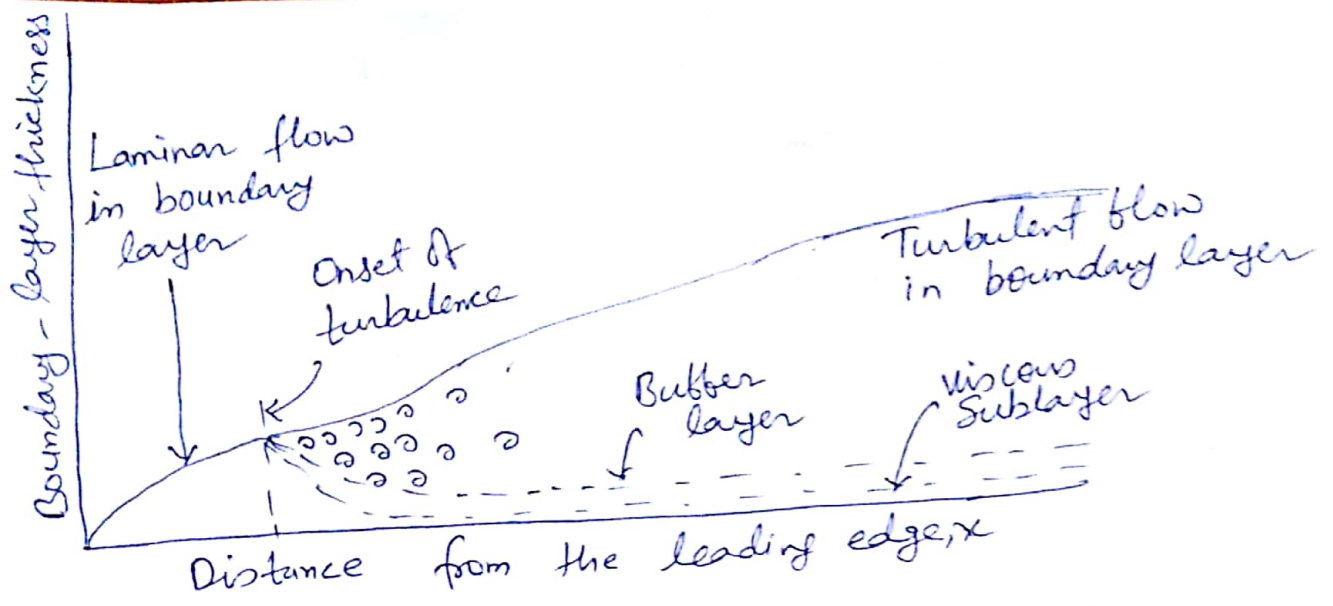 Boundary-layer thickness
Laminar flow
in boundary
layer
Onset of
turbulence
Turbulent flow
in boundary layer
Buffer
layer
viscous
Sublayer
Distance from the leading edge, x